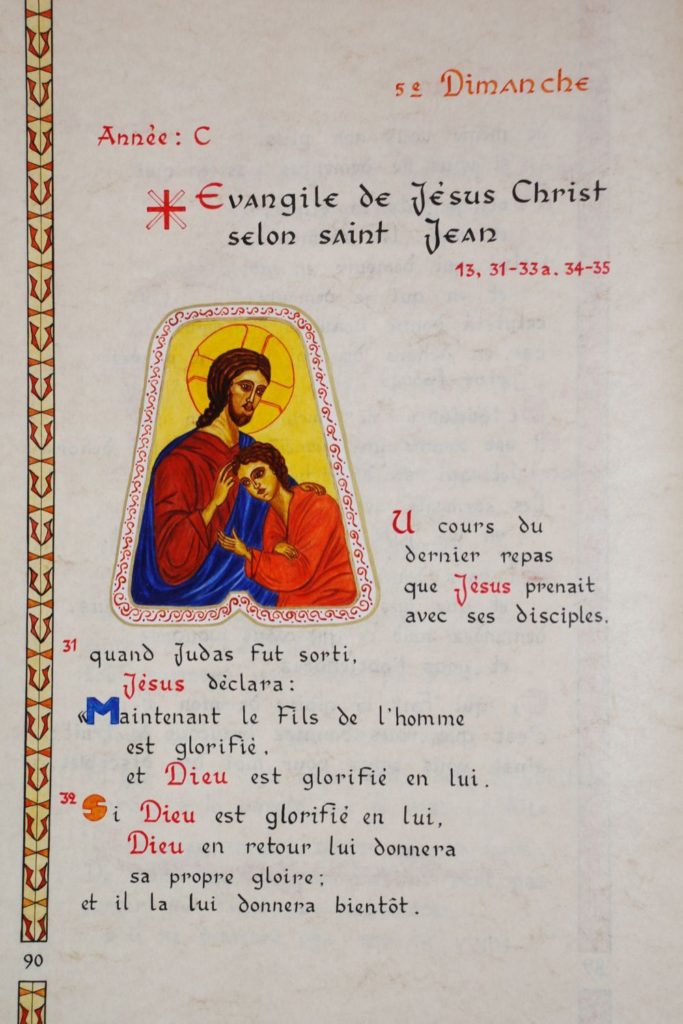 5e Dimanche
Année: C
Evangile de Jésus Christ
selon saint Jean
13, 31-33a. 34-35
U cours du
dernier repas
que Jésus prenait
avec ses disciples.
31 quand Judas fut sorti,
Jésus déclara:
«Maintenant le Fils de l'homme
est glorifié,
et Dieu est glorifié en lui.
32 Si Dieu est glorifié en lui,
Dieu en retour lui donnera
sa propre gloire;
et il la lui donnera bientôt.
90